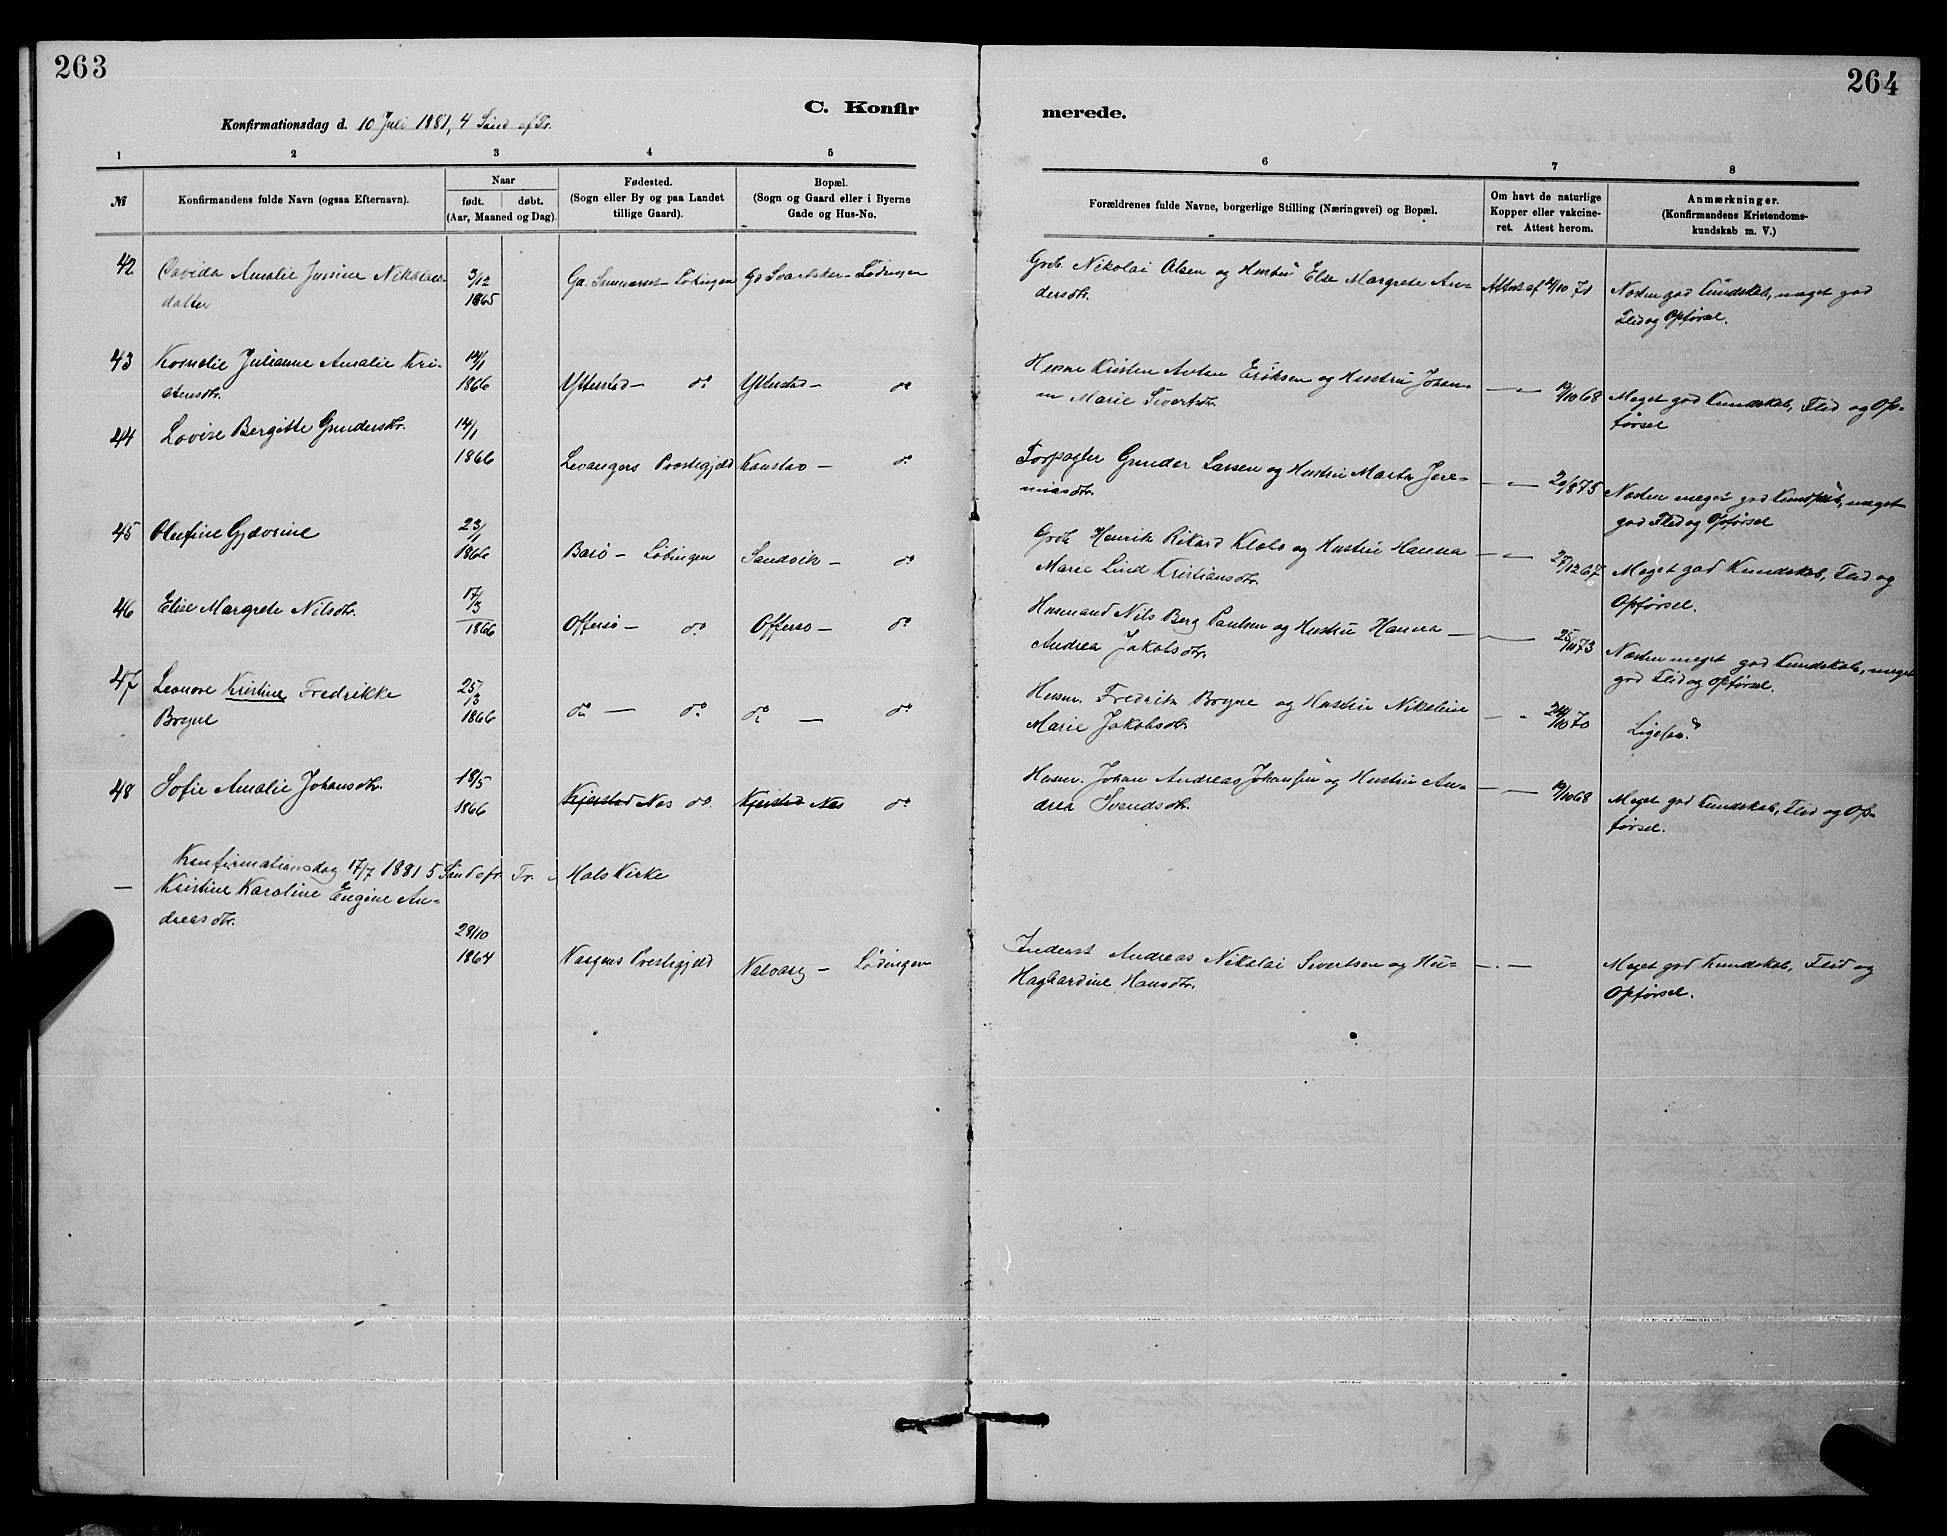 263
264
C. Konfir
merede.
Konfirmationsdag d. 10 Juli 1881, 4 Sønd ef Tr.
1
2
3
4
5
6
7
8
№
Konfirmandens fulde Navn (ogsaa Efternavn).
Naar
født. døbt.
(Aar, Maaned og Dag).
Fødested.
(Sogn eller By og paa Landet
tillige Gaard).
Bopæl.
(Sogn og Gaard eller i Byerne
Gade og Hus-No.
Forældrenes fulde Navne, borgerlige Stilling (Næringsvei) og Bopæl.
Om havt de naturlige
Kopper eller vakcine-
ret. Attest herom.
Anmærkninger.
(Konfirmandens Kristendoms-
kundskab m. V.)
42 Amalie 3/12 Ga. Lødingen Ga Lødingen Grdb. Nikolai Olsen og Hustru Else Margrete An- Attest af 12/10 71 Næsten god Kundskab, meget god
datter 1865 dersdtr. Flid og Opførsel.
43 Kornelie Julianne Amalie Kri- 14/1 Husm Kristen Anton Eriksen og Hustru Johan-
stensdtr. 1866 Ytterstad — do Ytterstad — do Marie Sivertsdtr. — " — 19/10 68 Meget god Kundskab, Flid og Op-
førsel
44 Lovise Bergitte Gundersdtr. 14/1
1866 Levangers Præstegjeld Kanstad — do Gunder Larsen og Hustru Marta Jere- — " — 20/8 75 Næsten meget god Kundskab, meget
miasdtr. god Flid og Opførsel
45 Olufine Gjævrine 23/1
1866 Barø — Lødingen Sandvik — do Grdb Henrik Rikard Klæbo og Hustru Hanna — " — 27/12 67 Meget god Kundskab, Flid og
Marie Lind Kristiansdtr. Opførsel.
46 Elise Margrete Nilsdtr. 17/3
1866 Offersø — do Offersø — do Husmand Nils Berg Paulsen og Hustru Hanna — " — 25/11 73 Næsten meget god Kundskab, meget
Andrea Jakobsdtr. god Flid og Opførsel.
47 Leonore Kristine Fredrikke 25/3
Bryne 1866 do — do do — do Husm. Fredrik Bryne og Hustru Nikoline — " 24/10 70 Ligesaa.
Marie Jakobsdtr.
48 Sofie Amalie Johansdtr. 18/5
1866 Kjerstad Næs do Kjerstad Næs do Husm. Johan Andreas Johansen og Hustru An- — " — 19/10 68 Meget god Kundskab, Flid og Op-
drea Svendsdtr. førsel.
Konfirmationsdag 17/7 1881 5 Sønd efr Tr. i Hols Kirke
— Kristine Karoline Eugine An-
dreasdtr. 28/10
1864 Præstegjeld — Lødingen Inderst Andreas Nikolai Sivertsen og Hu- — " — Meget god Kundskab, Flid og
Hagbardine Hansdtr. Opførsel.